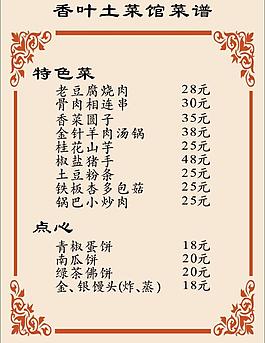 香叶土菜馆菜谱
特色菜
老豆腐烧肉 28元
骨肉相连串 30元
香菜圆子 35元
金针羊肉汤锅 38元
桂花山芋 25元
椒盐猪手 48元
土豆粉条 25元
铁板杏多包菇 25元
锅巴小炒肉 25元
点心
青椒蛋饼 18元
南瓜饼 20元
绿茶佛饼 20元
金、银馒头(炸、蒸) 18元